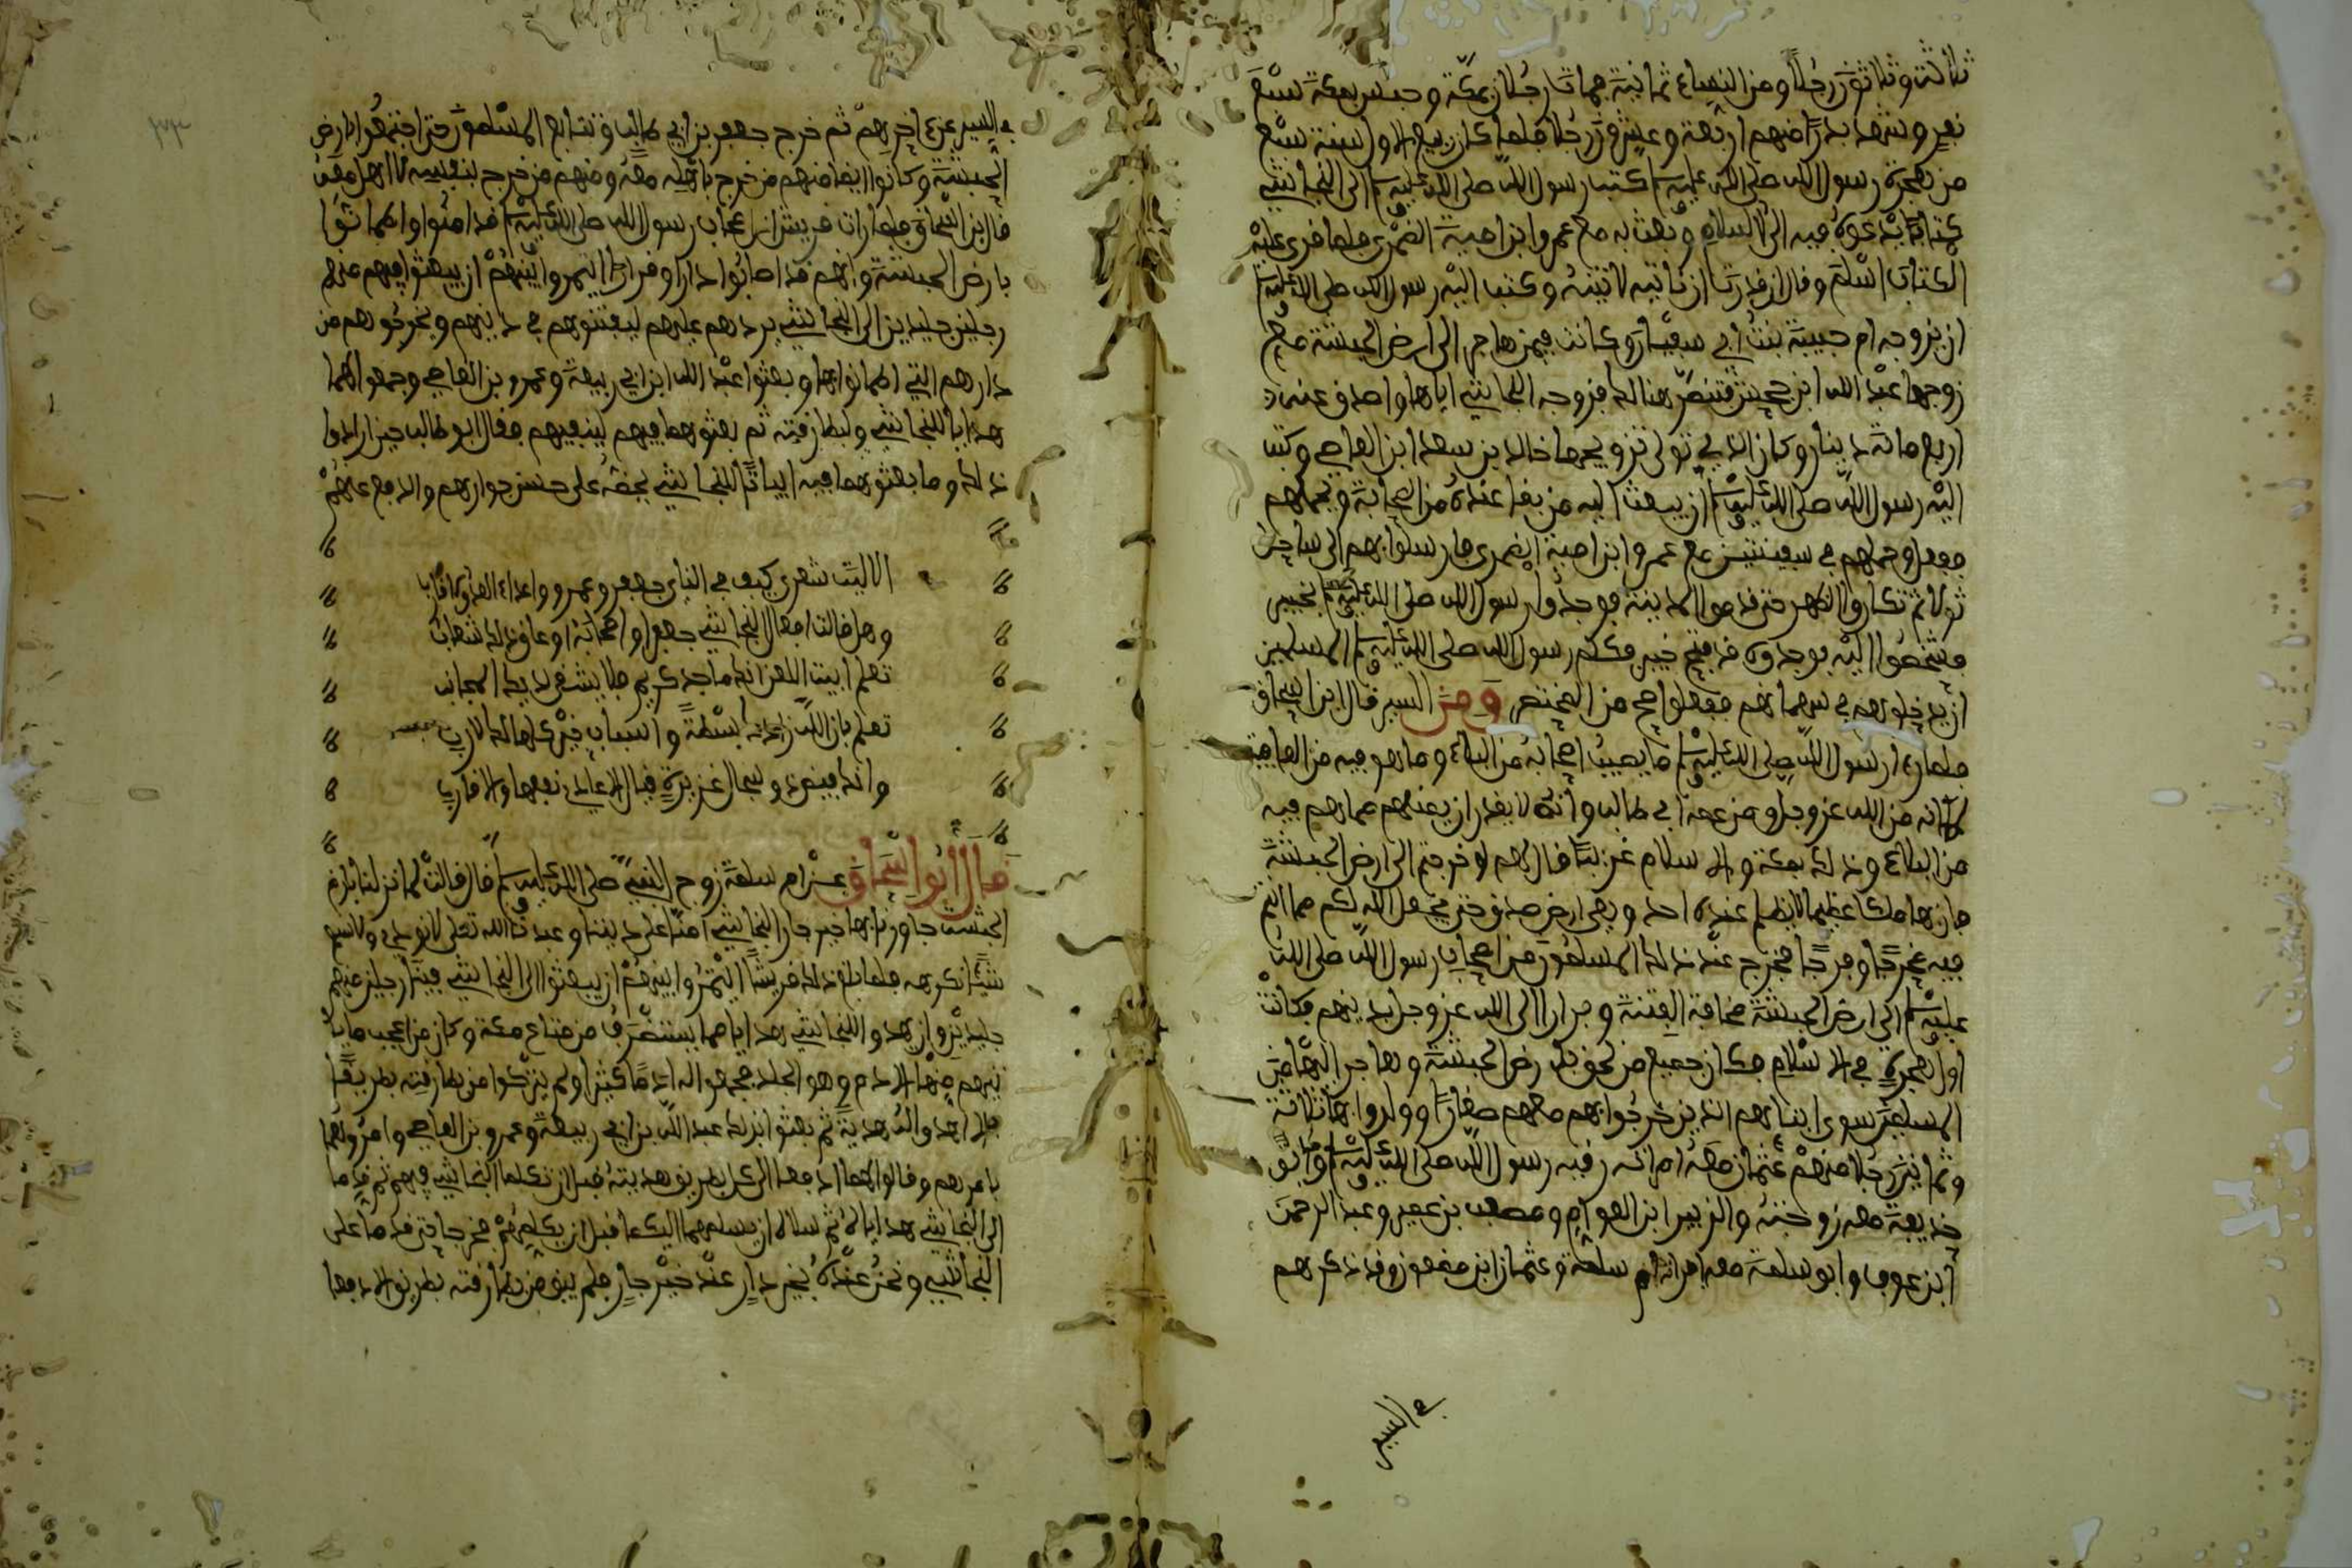 ثلاثة وثلاثون رجلا ومن النساء ثمانية فمات رجلان بمكة وحبس بمكة سبعة
نفر وشهد بدرا منهم أربعة وعشرون رجلا فلما كان ربيع الاول سنة سبع
من هجرة رسول الله صلى الله عليه وسلم كتب رسول الله صلى الله عليه وسلم إلى النجاشي
كتابا يدعوه فيه إلى الاسلام وبعث به مع عمرو ابن امية الضمري فلما قرئ عليه
الكتاب اسلم وقال ان قدرت ان ناتيه لاتيته وكتب اليه رسول الله صلى الله عليه وسلم
ان يزوجه ام حبيبة بنت ابي سفيان وكانت فيمن هاجر الى ارض الحبشة مع
زوجها عبد الله ابن جحش فتنصر هنالك فزوجه النجاشي اياها واصدق عنه
اربع مائة دينار وكان الذي تولى تزويجها خالد بن سعد ابن العاصي وكتب
اليه رسول الله صلى الله عليه وسلم ان يبعث اليه من بقا عنده من اصحابه ويحملهم
ففعل وحملهم في سفينتين مع عمرو ابن امية الضمري فارسلوا بهم الى ساحل
ثم تكاروا الظهر حتى قدموا المدينة فوجدوا رسول الله صلى الله عليه وسلم بخيبر
فشخصوا اليه فوجدوه قد فتح خيبر فكلم رسول الله صلى الله عليه وسلم المسلمين
ان يدخلوهم في سهمانهم ففعلوا صح من المختصر ومن السير قال ابن اسحاق
فلما رءا رسول الله صلى الله عليه وسلم ما يصيب اصحابه من البلاء وما هو فيه من العافية
لمكانه من الله عز وجل ومن عمه ابي طالب وانه لا يقدر ان يمنعهم مما هم فيه
من البلاء وذلك بمكة والاسلام غريبا قال لهم لو خرجتم الى ارض الحبشة
فان بها ملكا عظيما لا يظلم عنده احد وهي ارض صدق حتى يجعل الله لكم مما انتم
فيه مخرجا وفرجا فخرج عند ذلك المسلمون من اصحاب رسول الله صلى الله
عليه وسلم الى ارض الحبشة مخافة الفتنة وفرارا الى الله عز وجل بدينهم فكانت
اول هجرة في الاسلام فكان جميع من لحق بارض الحبشة وهاجر اليها من
المسلمين سوى ابنايهم الذين خرجوا بهم معهم صغارا وولدوا بها ثلاثة
وثمانين رجلا منهم عثمان معه امراته رقية رسول الله صلى الله عليه وسلم وابو
حذيفة معه زوجته والزبير ابن العوام ومصعب بن عمير وعبد الرحمن
ابن عوف وابو سلمة معه امراته ام سلمة وعثمان ابن مضعون وقد ذكرهم
في السير
في السير عن ءاخرهم ثم خرج جعفر بن ابي طالب وتتابع المسلمون حتى اجتمعوا بارض
الحبشة وكانوا ايضا منهم من خرج باهله معه ومنهم من خرج بنفسه لا اهل معه
قال ابن اسحاق فلما رات قريش ان اصحاب رسول الله صلى الله عليه وسلم قد امنوا واطمانوا
بارض الحبشة وانهم قد اصابوا دارا وقرارا ائتمروا بينهم ان يبعثوا فيهم منهم
رجلين جليدين الى النجاشي يردهم عليهم ليفتنوهم في دينهم ويخرجوهم من
دارهم التي اطمانوا بها وبعثوا عبد الله ابن ابي ربيعة وعمرو بن العاصي وجمعوا لهما
هدايا للنجاشي ولبطارقته ثم بعثوهما فيهم ليبغيهم فقال ابو طالب حين راءوا
ذلك وما بعثوهما فيه ابياتا للنجاشي يحضه على حسن جوارهم والدفع عنهم
الا ليت شعري كيف في الناي جعفر وعمرو واعداء العدو الاقارب
وهل نالت افعال النجاشي جعفرا واصحابه او عاق ذلك شاغب
تعلم ابيت اللعن انك ماجد كريم فلا يشقى لديك المجانب
تعلم بان الله زادك بسطة واسباب خير كلها لك لازب
وانك فيض ذو سجال غزيرة ينال الاعادي نفعها والاقارب
قال ابوا اسحاق عن ام سلمة زوج النبي صلى الله عليه وسلم قال قالت لما نزلنا بارض
الحبشة جاورنا بها خير جار النجاشي امنا على ديننا وعبدنا الله تعلى لا نوذى ولا نسمع
شيئا نكرهه فلما بلغ ذلك قريشا ائتمروا بينهم ان يبعثوا الى النجاشي فينا رجلين منهم
جليدين وان يهدوا للنجاشي هدايا مما يستطرف من متاع مكة وكان من اعجب ما
ياتيهم منها الادم وهو الجلد فجمعوا له ادما كثيرا ولم يتركوا من بطارقته بطريقا
الا اهدوا له هدية ثم بعثوا بذلك عبد الله بن ابي ربيعة وعمرو بن العاصي وامروهما
بامرهم وقالوا لهما ادفعا الى كل بطريق هديته قبل ان تكلما النجاشي فيهم ثم قدما
الى النجاشي هداياه ثم سلاه ان يسلمهم اليكما قبل ان يكلمهم فخرجا حتى قدما على
النجاشي ونحن عنده بخير دار عند خير جار فلم يبق من بطارقته بطريق الا دفعا